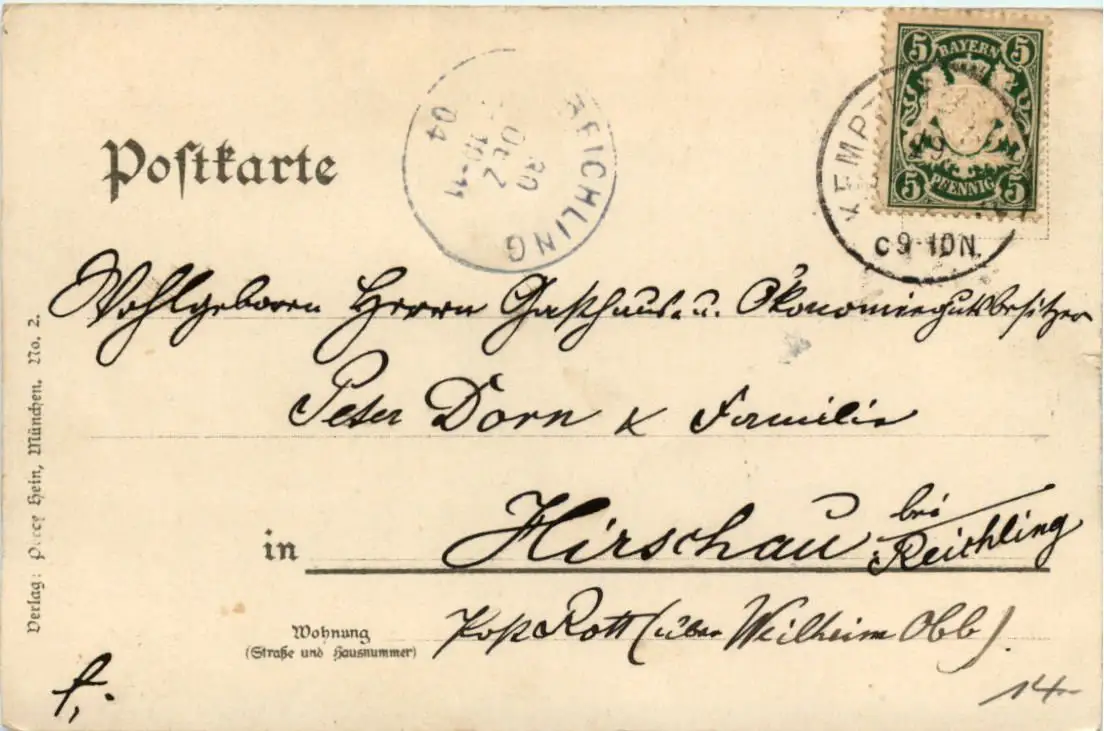 BAYERN
5 5
5 5
PFENNIG
KEMPT
9-10N.
REICHLING
30
DEZ
10-11
04
Postkarte
Wohlgeboren Herrn Gasthaus- u. Ökonomiegutsbesitzer
Peter Dorn & Familie
in Hirschau bei Reichling
Wohnung
(Straße und Hausnummer)
Post Rott (über Weilheim Obb).
f.
14-
Verlag: Percy Hein, München. No. 2.